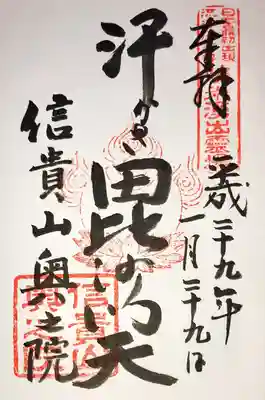 奉拝
平成二十九年
一月二十九日
汗かき毘沙門天
信貴山奥之院